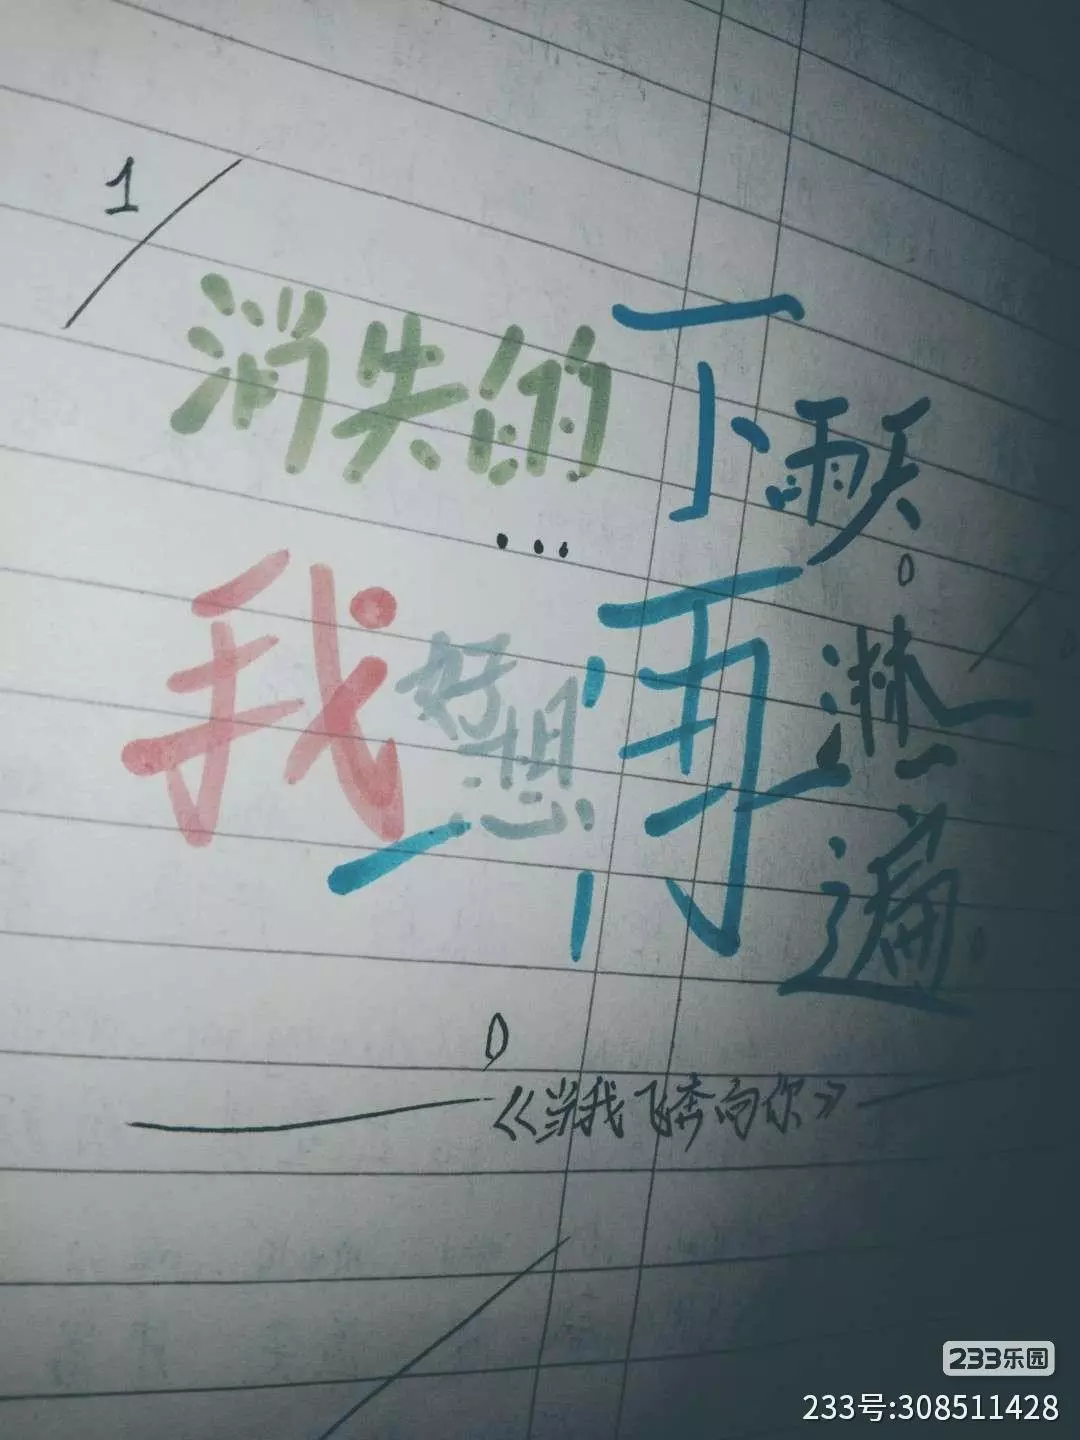 1
消失的下雨天。
...
我好想再淋一遍。
《当我飞奔向你》
233乐园
233号:308511428